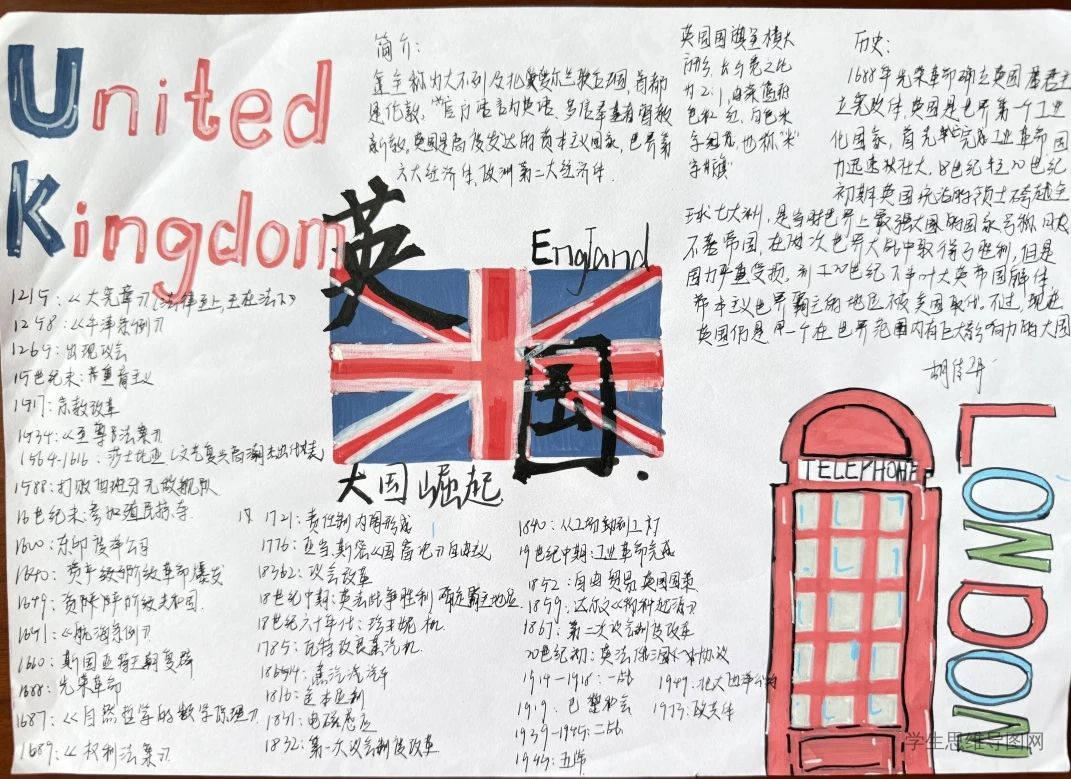 United
Kingdom
简介:
全称为大不列及北爱尔兰联合王国,首都
是伦敦,官方语言为英语,多信奉基督教
新教。英国是高度发达的资本主义国家,世界第
六大经济体,欧洲第二大经济体.
英国国旗呈横长
方形,长与宽之比
为2:1,由深蓝
色和红、白色米
字组成,也称“米”
字旗
历史:
1688年光荣革命确立英国君主
立宪政体,英国是世界第一个工业
化国家,首先完成工业革命国
力迅速壮大,18世纪至20世纪
初期英国统治的领土跨越全
球七大洲,是当时世界上最强大国的国家号称日
不落帝国,在两次世界大战中取得了胜利,但是
国力严重受损,到了20世纪下半叶大英帝国解体
资本主义世界霸主的地位被美国取代。不过,现在
英国仍是一个在世界范围内有巨大影响力的大国
英
国
England
大国崛起
1215:《大宪章》(法律至上,王在法下)
1258:《牛津条例》
1265:出现议会
15世纪末:重商主义
宗教改革
《至尊法案》
1564-1616:莎士比亚(文艺复兴高潮杰出代表)
1588:打败西班牙无敌舰队
16世纪末:参加殖民掠夺
1600:东印度公司
1640:资产级阶级革命爆发
1649:资阶级共和国.
《航海条例》
1660:斯图亚特王朝复辟
1688:光荣革命
1687:《自然哲学的数学原理》
1689:《权利法案》
1721:责任制内阁形成
1776:亚当斯密《国富论》自由主义
议会改革
18世纪中期:英法战争胜利 确定霸主地位
18世纪六十年代:珍妮机
1785:瓦特改良蒸汽机.
蒸汽汽车
1831:电磁感应
1832:第一次议会制度改革
1840:
19世纪中期:工业革命完成
自由贸易英国国策
1859:达尔文《物种起源》
1867:第二次议会制度改革
20世纪初:英法俄协议
1914-1918:一战
1919.巴黎和会
1939-1945:二战
1949:北大西洋公约
1973:欧共体
TELEPHONE
LONDON
学生思维导图网